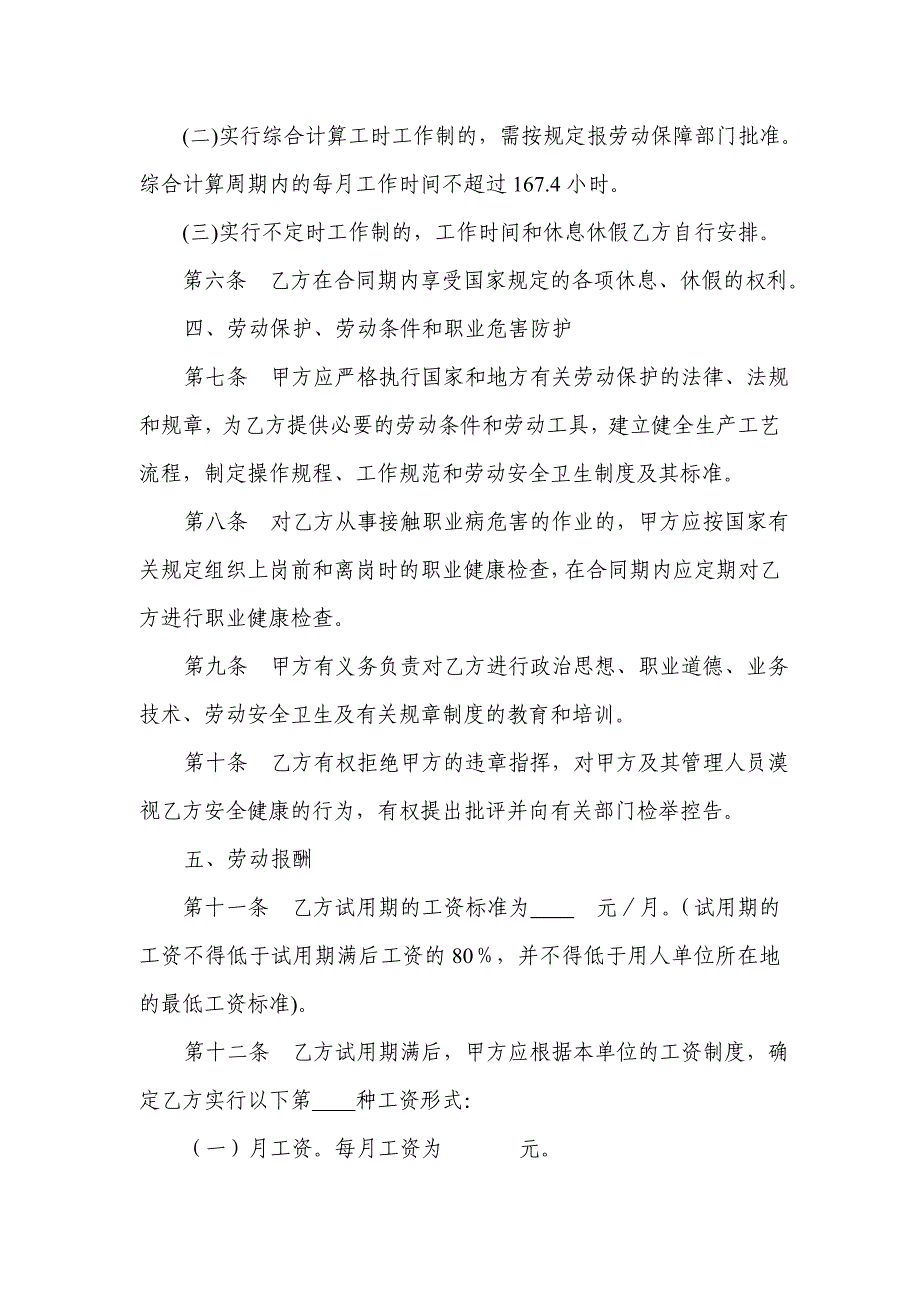 (二)实行综合计算工时工作制的，需按规定报劳动保障部门批准。
综合计算周期内的每月工作时间不超过 167.4 小时。
(三)实行不定时工作制的，工作时间和休息休假乙方自行安排。
第六条　乙方在合同期内享受国家规定的各项休息、休假的权利。
四、劳动保护、劳动条件和职业危害防护
第七条　甲方应严格执行国家和地方有关劳动保护的法律、法规
和规章，为乙方提供必要的劳动条件和劳动工具，建立健全生产工艺
流程，制定操作规程、工作规范和劳动安全卫生制度及其标准。
第八条　对乙方从事接触职业病危害的作业的，甲方应按国家有
关规定组织上岗前和离岗时的职业健康检查，在合同期内应定期对乙
方进行职业健康检查。
第九条　甲方有义务负责对乙方进行政治思想、职业道德、业务
技术、劳动安全卫生及有关规章制度的教育和培训。
第十条　乙方有权拒绝甲方的违章指挥，对甲方及其管理人员漠
视乙方安全健康的行为，有权提出批评并向有关部门检举控告。
五、劳动报酬
第十一条　乙方试用期的工资标准为____　元／月。（试用期的
工资不得低于试用期满后工资的 80％，并不得低于用人单位所在地
的最低工资标准)。
第十二条　乙方试用期满后，甲方应根据本单位的工资制度，确
定乙方实行以下第____种工资形式：
（一）月工资。每月工资为　　　　元。